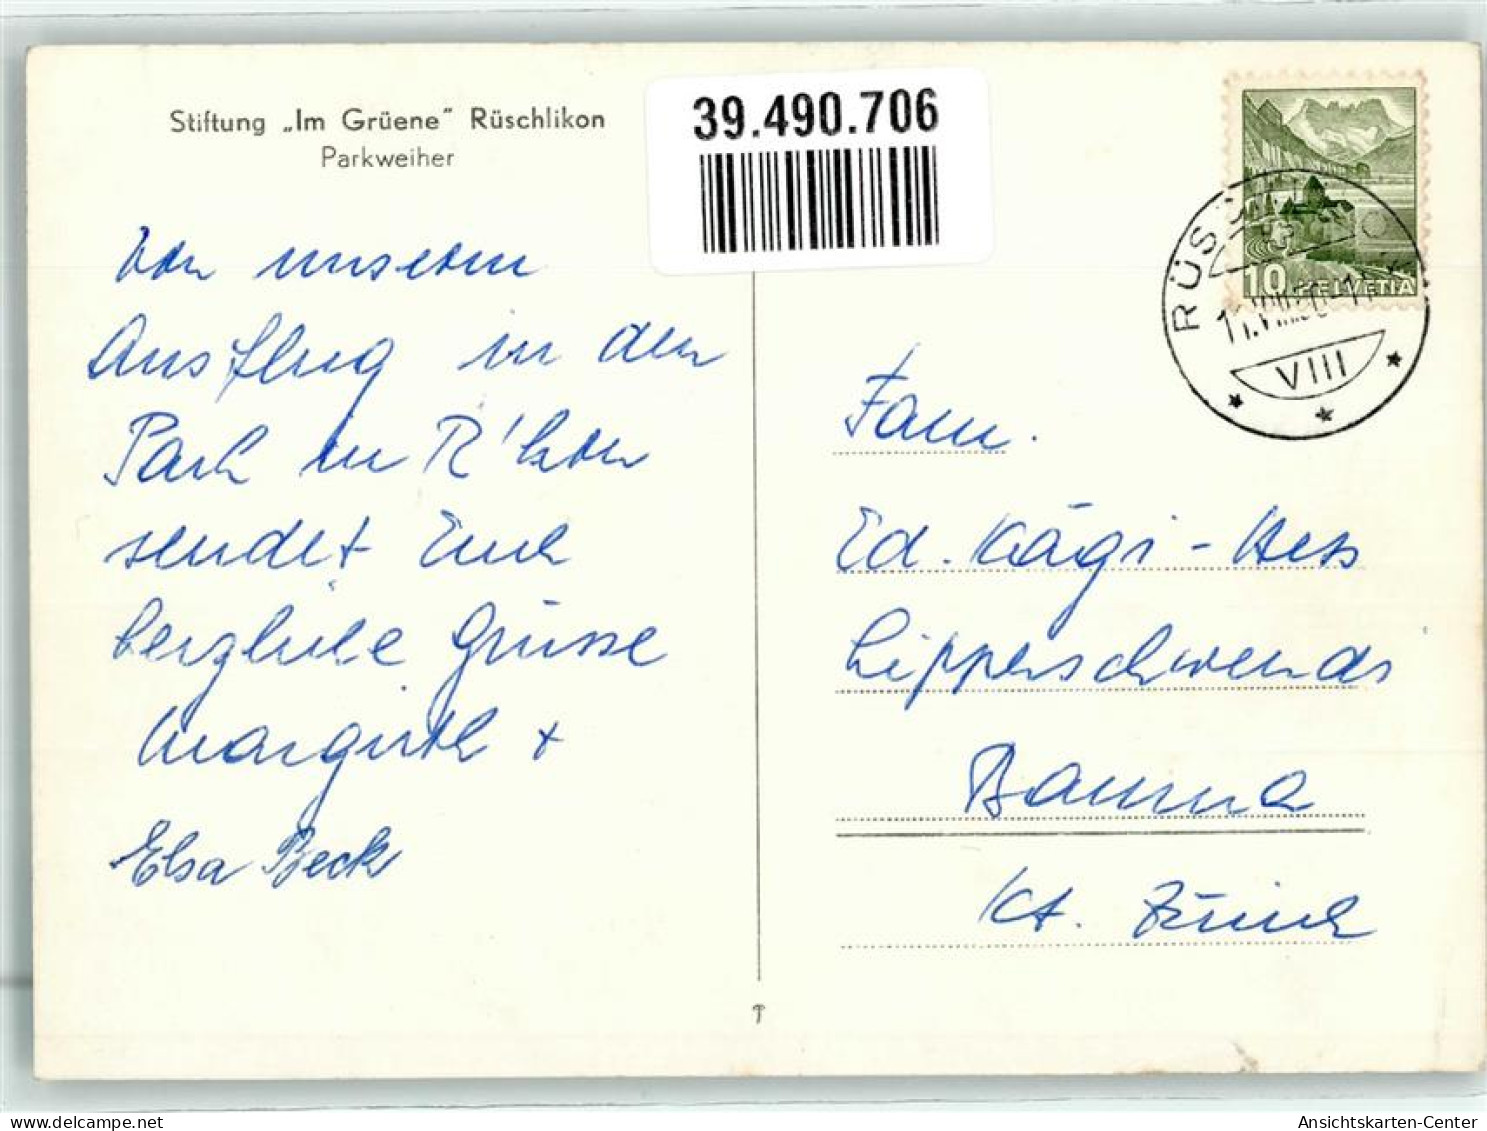 Stiftung „Im Grüene" Rüschlikon
Parkweiher
39.490.706
Von unserem
Ausflug in den
Park in R'kon
sendet Euch
herzliche Grüsse
Margrith +
Elsa Beck
10 HELVETIA
RÜS
VIII
Fam.
Ed. Kägi-Hess
Lipperschwendi
Bauma
Kt. Zürich
Ansichtskarten-Center